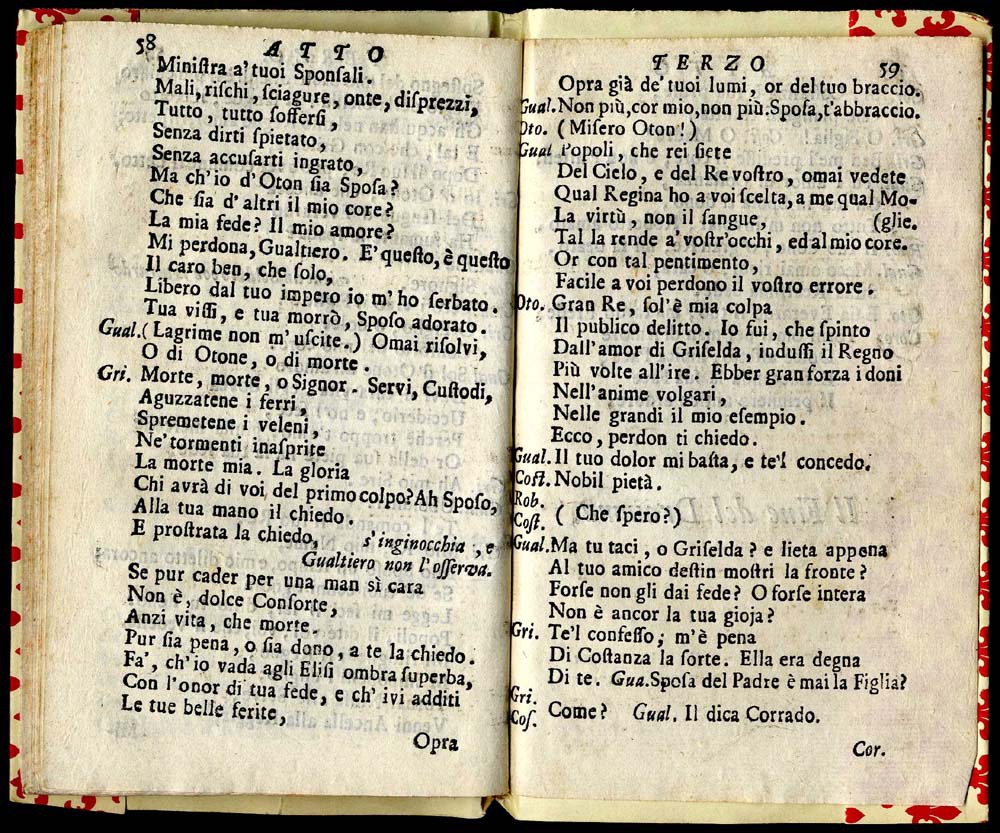 58 ATTO
Miniſtra a' tuoi Sponſali.
Mali, riſchi, ſciagure, onte, diſprezzi,
Tutto, tutto ſofferſi,
Senza dirti ſpietato,
Senza accuſarti ingrato,
Ma ch'io d'Oton ſia Spoſa?
Che ſia d'altri il mio core?
La mia fede? Il mio amore?
Mi perdona, Gualtiero. E' queſto, è queſto
Il caro ben, che ſolo,
Libero dal tuo impero io m'ho ſerbato.
Tua viſſi, e tua morrò, Spoſo adorato.
Gual. (Lagrime non m'uſcite.) Omai riſolvi,
O di Otone, o di morte.
Gri. Morte, morte, o Signor. Servi, Cuſtodi,
Aguzzatene i ferri,
Spremetene i veleni,
Ne' tormenti inaſprite
La morte mia. La gloria
Chi avrà di voi del primo colpo? Ah Spoſo,
Alla tua mano il chiedo.
E proſtrata la chiedo, s'inginocchia, e
Gualtiero non l'oſſerva.
Se pur cader per una man sì cara
Non è, dolce Conſorte,
Anzi vita, che morte.
Pur ſia pena, o ſia dono, a te la chiedo.
Fa', ch'io vada agli Eliſi ombra ſuperba,
Con l'onor di tua fede, e ch'ivi additi
Le tue belle ferite,
Opra
TERZO 59
Opra già de' tuoi lumi, or del tuo braccio.
Gual. Non più, cor mio, non più. Spoſa, t'abbraccio.
Oto. (Miſero Oton!)
Gual Popoli, che rei ſiete
Del Cielo, e del Re voſtro, omai vedete
Qual Regina ho a voi ſcelta, a me qual Mo-
La virtù, non il ſangue, (glie.
Tal la rende a' voſtr'occhi, ed al mio core.
Or con tal pentimento,
Facile a voi perdono il voſtro errore.
Oto. Gran Re, ſol'è mia colpa
Il publico delitto. Io fui, che ſpinto
Dall'amor di Griſelda, induſſi il Regno
Più volte all'ire. Ebber gran forza i doni
Nell'anime volgari,
Nelle grandi il mio eſempio.
Ecco, perdon ti chiedo.
Gual. Il tuo dolor mi baſta, e te'l concedo.
Coſt. Nobil pietà.
Rob.
Coſt. (Che ſpero?)
Gual. Ma tu taci, o Griſelda? e lieta appena
Al tuo amico deſtin moſtri la fronte?
Forſe non gli dai fede? O forſe intera
Non è ancor la tua gioja?
Gri. Te'l confeſſo; m'è pena
Di Coſtanza la ſorte. Ella era degna
Di te. Gua. Spoſa del Padre è mai la Figlia?
Gri.
Coſ. Come? Gual. Il dica Corrado.
Cor.